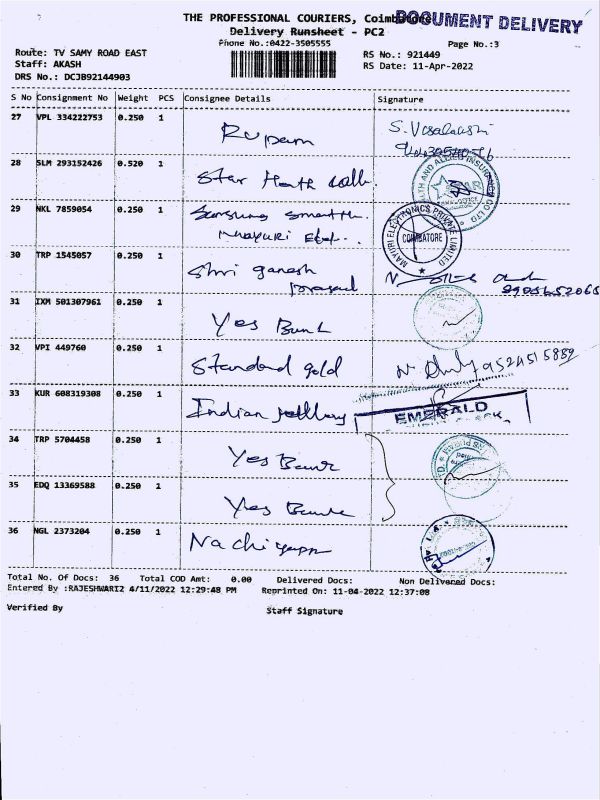 THE PROFESSIONAL COURIERS, Coimbatore
DOCUMENT DELIVERY
Delivery Runsheet - PC2
Phone No.:0422-3505555
Page No.:3
Route: TV SAMY ROAD EAST
RS No.: 921449
Staff: AKASH
RS Date: 11-Apr-2022
DRS No.: DCJB92144903
S No Consignment No Weight PCS Consignee Details Signature
27 VPL 334222753 0.250 1 Rupam S. Visalakshi
28 SLM 293152426 0.520 1 Star Health
HEALTH AND ALLIED INSURANCE CO LTD
STAR
29 NKL 7859054 0.250 1 Samsung Smart
Mayuri
MAYURI ELEYTRONICS PRIVATE LIMITED
COIMBATORE
30 TRP 1545057 0.250 1 Shri ganesh
prasad
31 IXM 501307961 0.250 1 Yes Bank
32 VPI 449760 0.250 1 Standard gold 9524515889
33 KUR 608319308 0.250 1 Indian jewellery
EMERALD
34 TRP 5704458 0.250 1 Yes Bank
35 EDQ 13369588 0.250 1 Yes Bank
36 NGL 2373204 0.250 1 Nachiyappa
Total No. Of Docs: 36 Total COD Amt: 0.00 Delivered Docs: Non Delivered Docs:
Entered By :RAJESHWARI2 4/11/2022 12:29:48 PM Reprinted On: 11-04-2022 12:37:08
Verified By Staff Signature